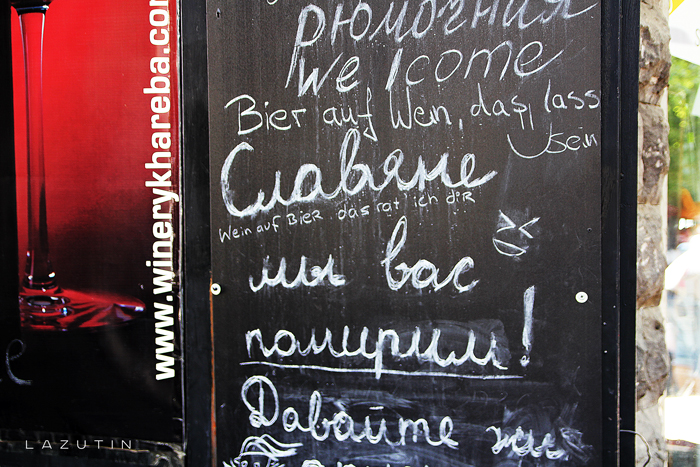 www.winerykhareba.com
Рюмочная
We lcome
Bier auf Wein, das lass
sein
Славяне
Wein auf Bier das rat ich dir
мы вас
помирим!
Давайте
LAZUTIN